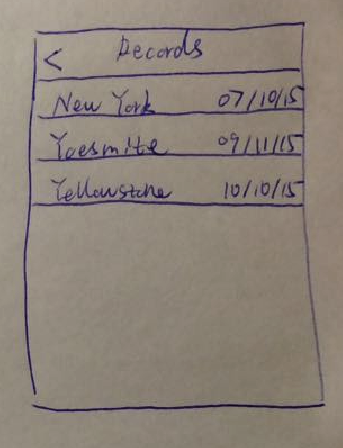 < Records
New York 07/10/15
Yoesmite 09/11/15
Yellowstone 10/10/15